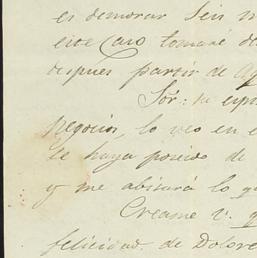 es demorar Seis m
este Caso tomaré de
despues partir de Aq
Sór:
negocios, lo veo en e
le haya poseido de
y me abisará lo qu
Creame V. q
felicidad de Dolore